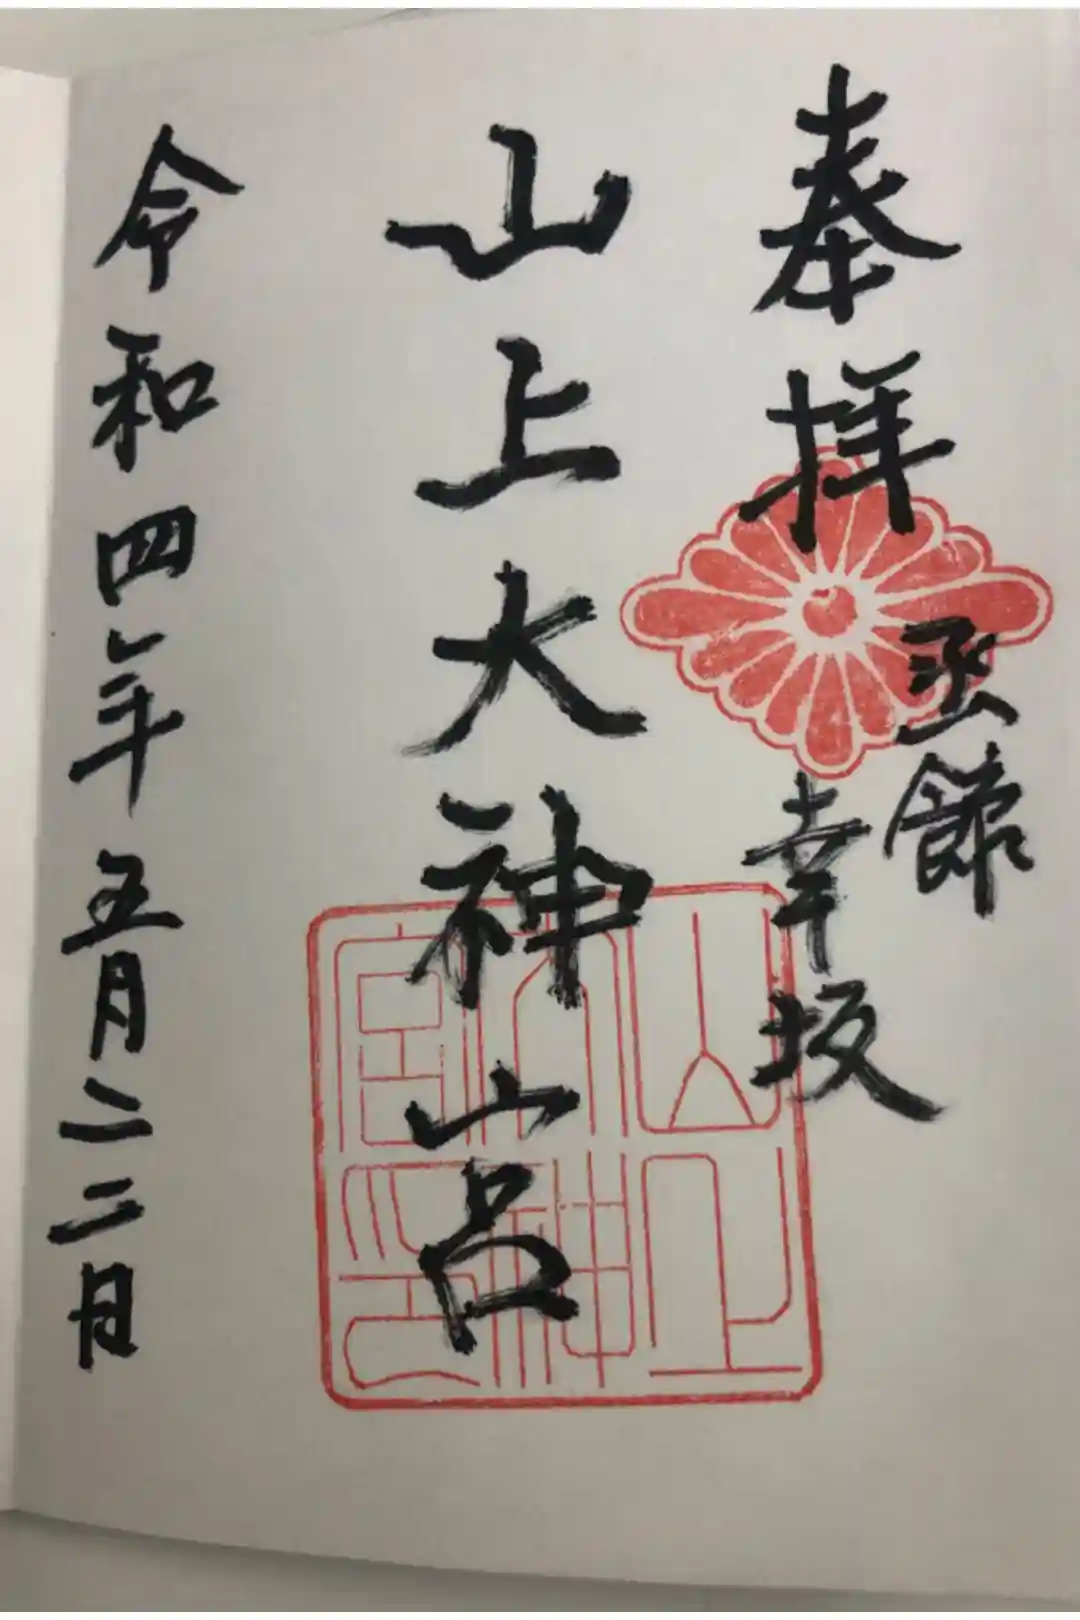 奉拝
函館
幸坂
山上大神宮
令和四年五月二二日
山上
大神
宮